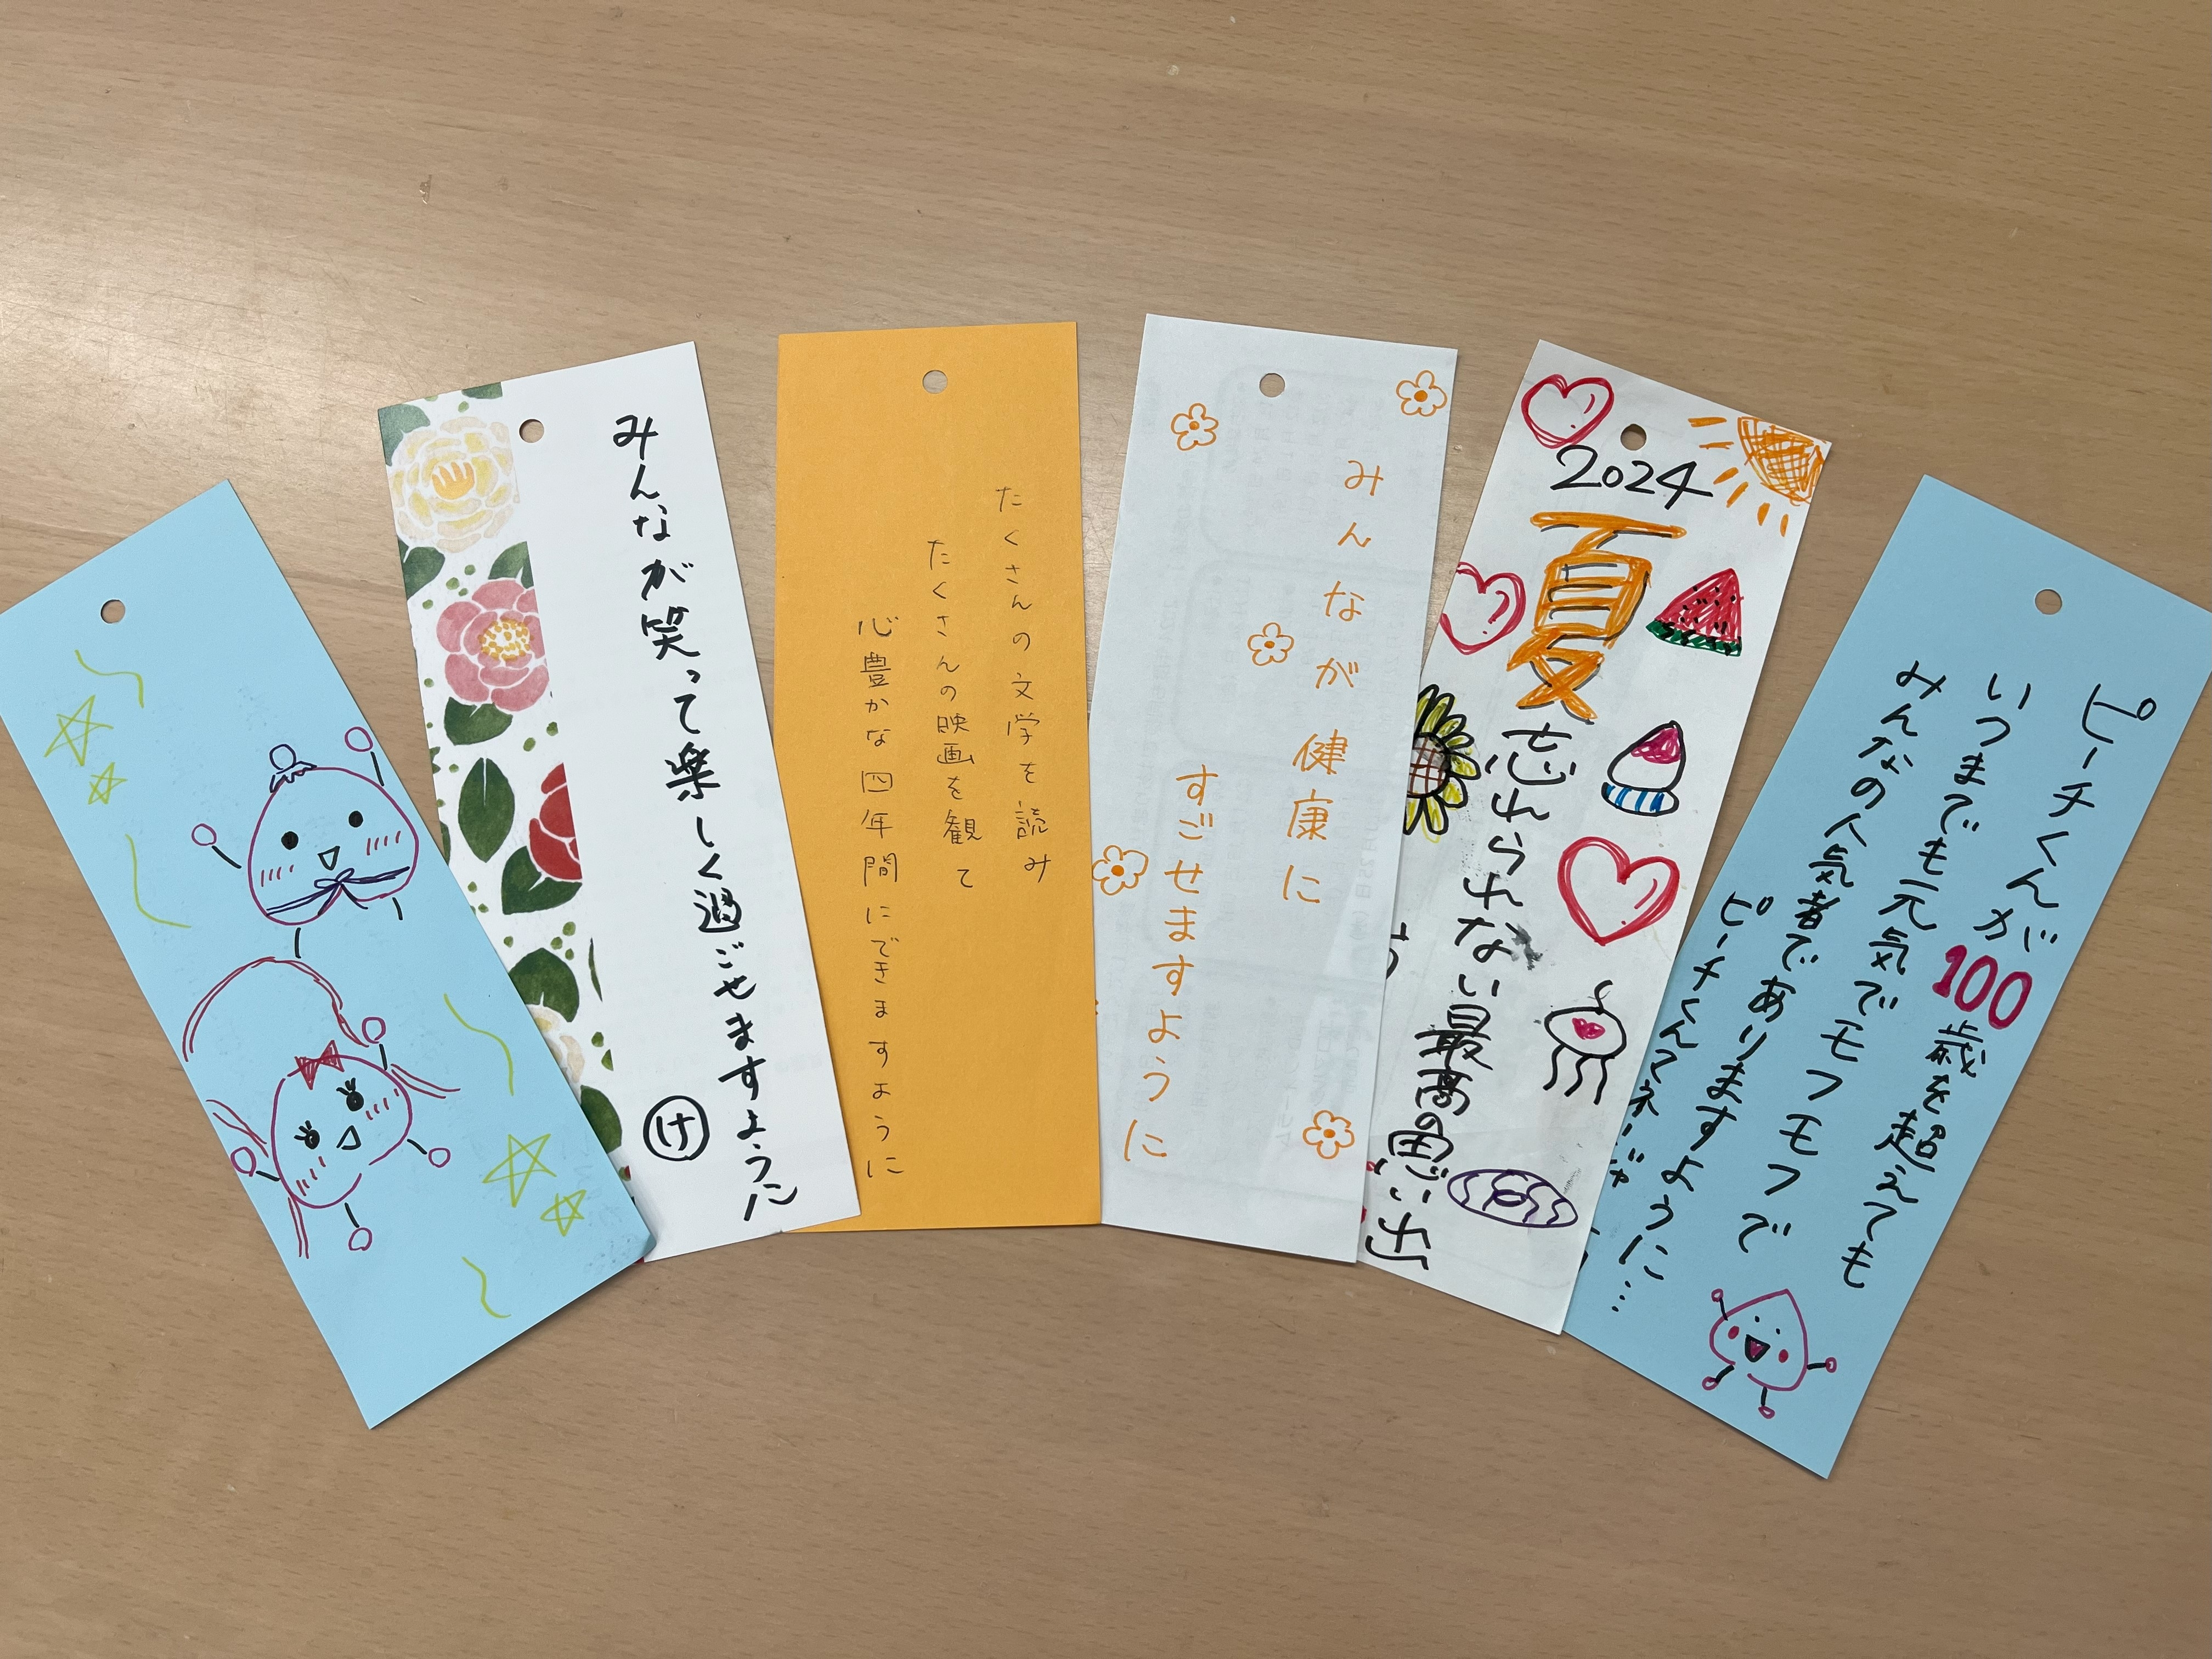 みんなが笑って楽しく過ごせますように
け
たくさんの文学を読み
たくさんの映画を観て
心豊かな四年間にできますように
みんなが健康に
すごせますように
2024
夏
忘れられない最高の思い出
ピーチくんが100歳を超えても
いつまでも元気でモフモフで
みんなの人気者でありますように…
ピーチくんマネージャー